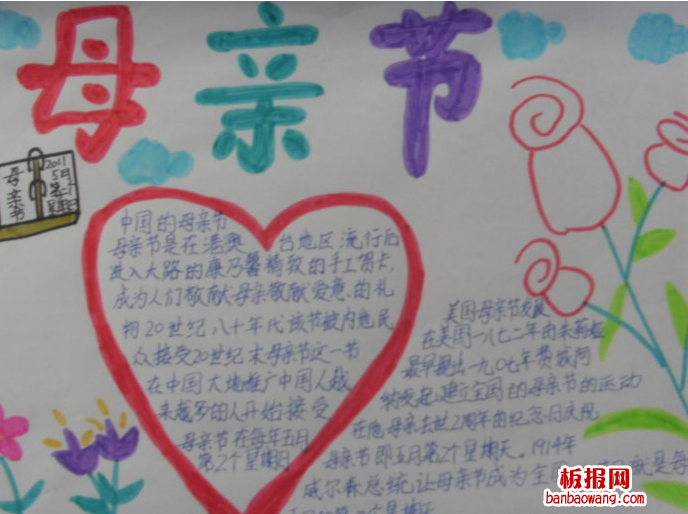 母亲节
母亲节
2011
5月
第二个
星期日
中国的母亲节
母亲节是在港澳台地区流行后
进入大路的康乃馨精致的手工贺卡,
成为人们敬献母亲敬献爱意、的礼
物20世纪八十年代该节被内地民
众接受20世纪末母亲节这一节
在中国大地推广中国人越
来越多的人开始接受
母亲节在每年五月
第2个星期日
美国母亲节发展
在美国一八七二年由朱莉娅
最早提出一九0七年费城阿
纳发起建立全国的母亲节的运动
在他母亲去世2周年的纪念日庆祝
母亲节即五月第2个星期天。1914年
威尔森总统让母亲节成为全
就是每
板报网
banbaowang.com